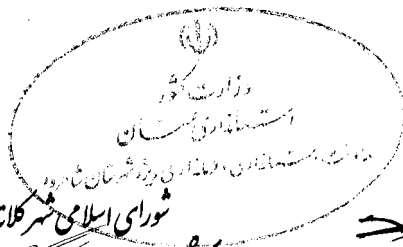 وزارت کشور
استانداری سمنان
معاونت استانداری و فرمانداری ویژه شهرستان شاهرود
شورای اسلامی شهر